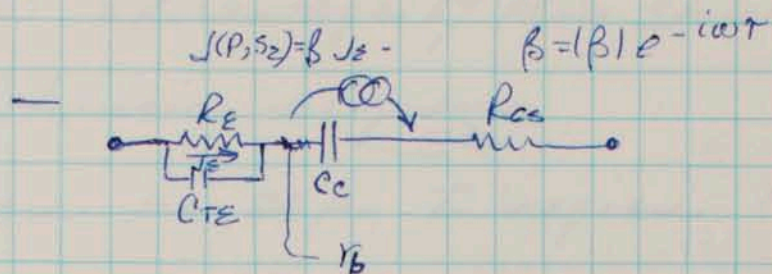 J(P,S₂)=β Jε -
β=|β| e^-iωτ
Rε
Jε
CTE
Cc
Rcs
rb